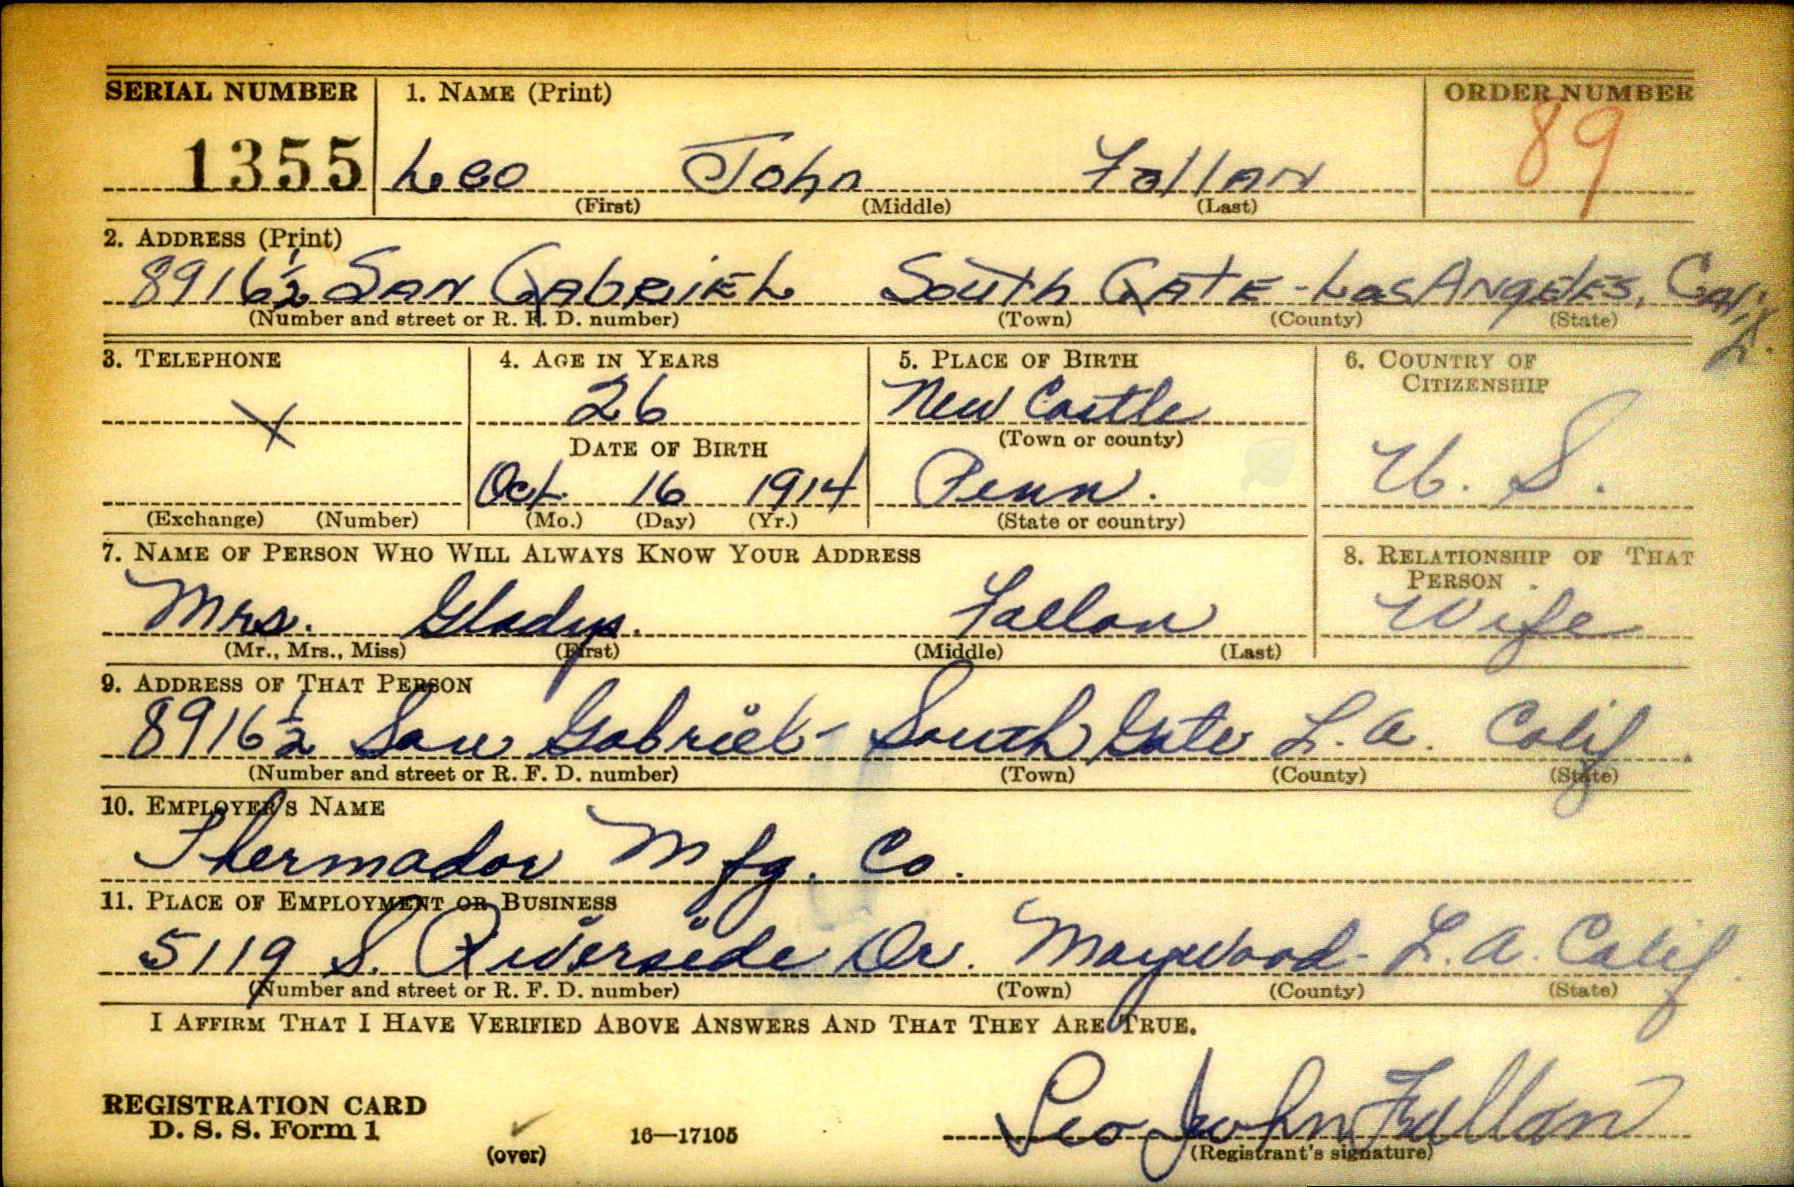 SERIAL NUMBER 1. NAME (Print) ORDER NUMBER
1355 Leo John Fallan 89
(First) (Middle) (Last)
2. ADDRESS (Print)
8916½ SAN GAbRiEL SOUTh GATE - Los ANgELES, CALif.
(Number and street or R. F. D. number) (Town) (County) (State)
3. TELEPHONE 4. AGE IN YEARS 5. PLACE OF BIRTH 6. COUNTRY OF CITIZENSHIP
X 26 New Castle
DATE OF BIRTH (Town or county)
Oct. 16 1914 Penn. U. S.
(Exchange) (Number) (Mo.) (Day) (Yr.) (State or country)
7. NAME OF PERSON WHO WILL ALWAYS KNOW YOUR ADDRESS 8. RELATIONSHIP OF THAT PERSON
Mrs. Gladys. Fallan Wife
(Mr., Mrs., Miss) (First) (Middle) (Last)
9. ADDRESS OF THAT PERSON
8916½ San Gabriel - South Gate L. A. Calif.
(Number and street or R. F. D. number) (Town) (County) (State)
10. EMPLOYER'S NAME
Thermador Mfg. Co.
11. PLACE OF EMPLOYMENT OR BUSINESS
5119 S. Riverside Dr. Maywood - L. A. Calif.
(Number and street or R. F. D. number) (Town) (County) (State)
I AFFIRM THAT I HAVE VERIFIED ABOVE ANSWERS AND THAT THEY ARE TRUE.
REGISTRATION CARD
D. S. S. Form 1
(over) 16—17105 Leo John Fallan
(Registrant's signature)